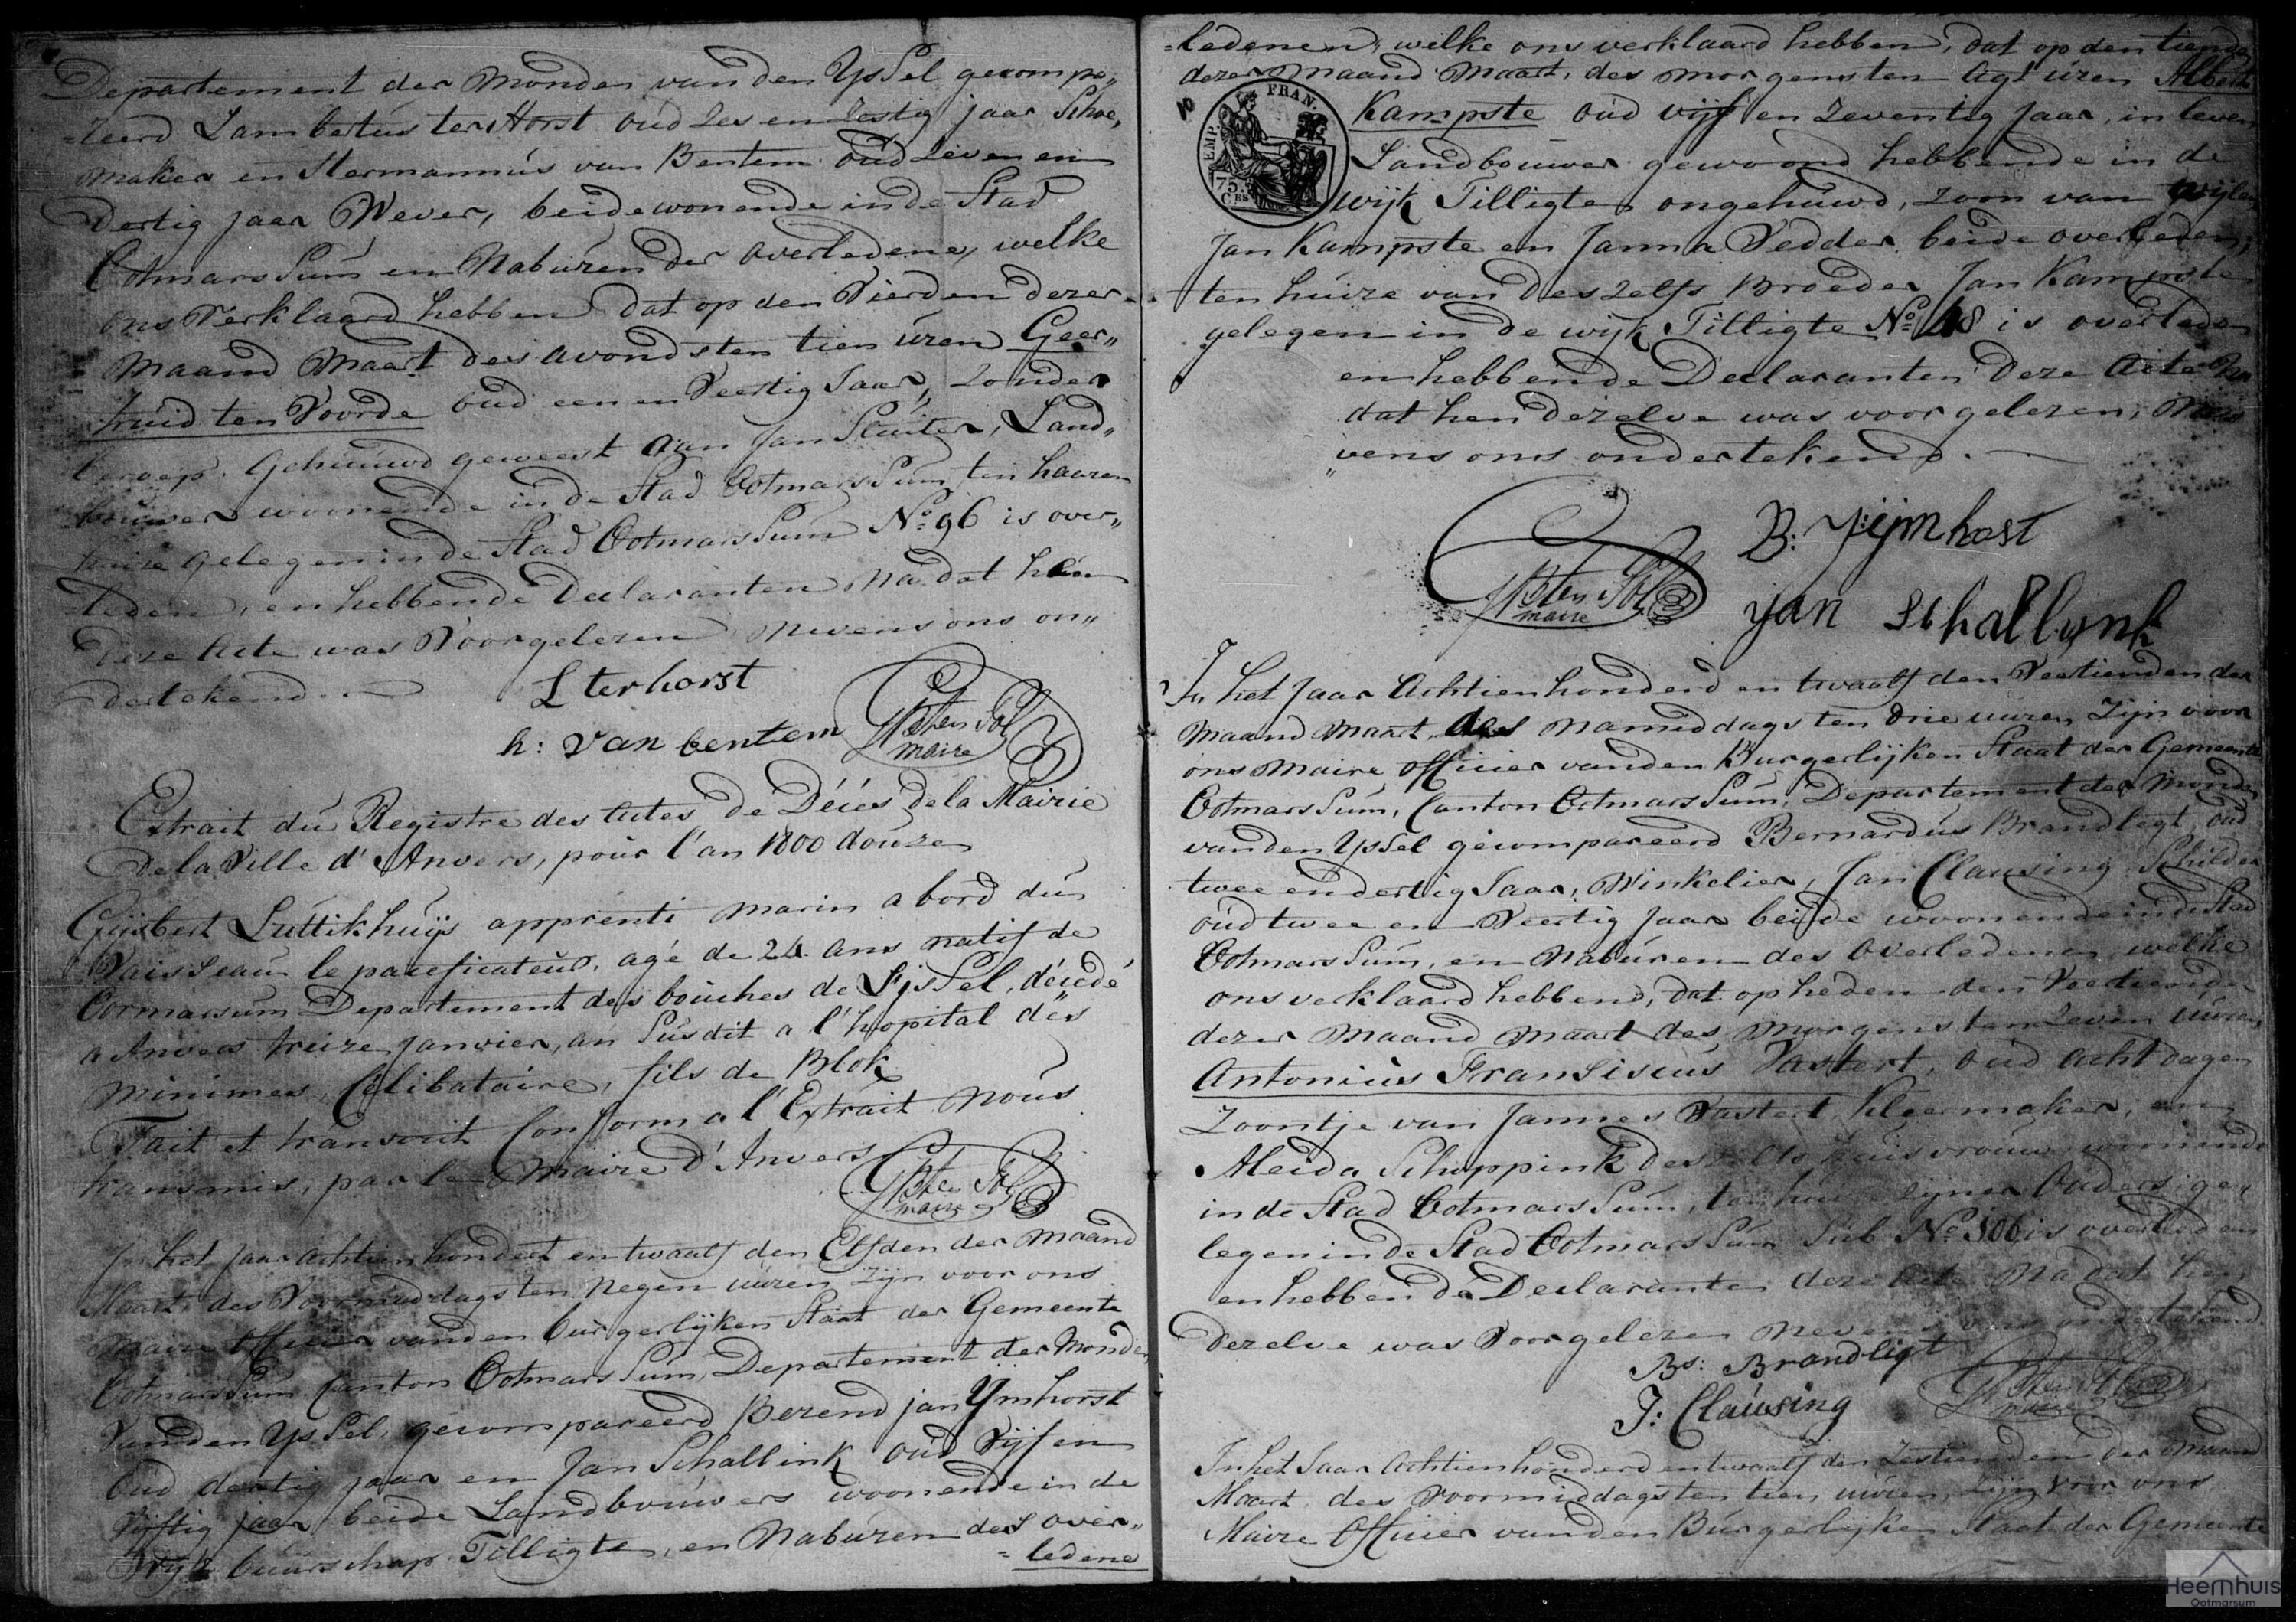 Departement der Monden van den YsSel gecompa„
-reerd Lambertus ter Horst oud Zes en Zestig jaar Schoe„
maker en Hermannus van Bentem oud Zeven en
dertig jaar Wever, beide wonende in de Stad
OotmarsSum en Naburen der Overledene, welke
ons Verklaard hebben dat op den Vierden dezer
Maand Maart des avonds ten tien uren Geer„
truid ten Voorde oud een en Veertig Jaar, zonder
beroep. Gehuuwd geweest aan Jan Sluiter, Land„
bouwer woonende in de Stad OotmarsSum ten haaren
huize gelegen in de Stad OotmarsSum No: 96 is over„
leden, en hebbende Declaranten na dat hen
deze Acte was Voorgelezen nevens ons on„
dertekend.
L ter horst
h: van bentem
maire
Extrait du Registre des Actes de Décés de la Mairie
de la Ville d'Anvers, pour l'an 1800 douze
Gijsbert Luttikhuijs apprenti marin a bord du
Vaisseau le pacificateur, agé de 24 ans natif de
Oormarsum Departement des bouches de L'ijsSel, décédé
a Anvers treize janvier, an Susdit a l'hopital des
minimes, Célibataire, fils de Blok
Fait et transcrit Conform a l'Extrait nous
transmis, par le Maire d'Anvers
maire
In het Jaar achtien hondert en twaalf den Elfden der Maand
Maart des Voormiddags ten Negen uuren zijn voor ons
Maire Officier van den burgerlijken Staat der Gemeente
OotmarsSum Canton OotmarsSum, Departement der Monden
Van den YsSel, gecompareerd Berend jan Ymhorst
Oud dertig jaar en Jan Schallink oud Vijf en
Vijftig jaar beide Landbouwers woonende in de
Wijk buurschap Tilligte, en Naburen des over„
=ledene
=ledenen, welke ons verklaard hebben, dat op den tiende
dezer maand Maart, des morgens ten Agt uren Albert
Kampste oud vijf en Zeventig Jaar, in leven
Landbouwer gewoond hebbende in de
wijk Tilligte, ongehuwd, Zoon van wijlen
Jan Kampste en Janna Vedder beide overleden,
ten huize van deszelfs Broeder Jan Kampste
gelegen in de wijk Tilligte No: 48 is overleden
en hebbende Declaranten deze Acte na
dat hen dezelve was voorgelezen, ne„
„vens ons ondertekend.
EMP. FRAN.
75.
B: Yijmhorst
maire
Jan Schallynk
In het Jaar Achtienhonderd en twaalf den Veertienden der
Maand Maart, des namiddags ten drie uuren, Zijn voor
ons Maire Officier van den Burgerlijken Staat der Gemeente
OotmarsSum, Canton OotmarsSum, Departement der Monden
van den YsSel gecompareerd Bernardus Brandligt, oud
twee en dertig Jaar, Winkelier, Jan Clausing Schilder
oud twee en Veertig Jaar beide woonende in de Stad
OotmarsSum, en Naburen des Overledenen, welke
ons verklaard hebbend, dat op heden den Veertienden
dezer Maand Maart des morgens ten Zeven uuren,
Antonius FranSiscus Vastert, oud acht dagen
Zoontje van Jannes Vastert, Kleermaker, en
Aleida Schoppink deszelfs huisvrouw, woonende
in de Stad OotmarsSum, ten huize zijner Ouders ge„
legen in de Stad OotmarsSum Sub No: 106 is overleden
en hebbende Declaranten deze Acte Na dat hen
dezelve was Voorgelezen nevens ons ondertekend
Bs: Brandligt
J: Clausing
maire
In het Jaar Achtienhonderd en twaalf den Zestienden der Maand
Maart, des Voormiddags ten tien uuren, Zijn voor ons
Maire Officier van den Burgerlijken Staat der Gemeente
Heemhuis
Ootmarsum